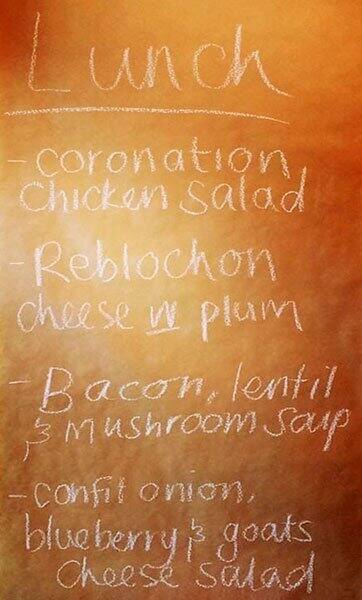 Lunch
- coronation
chicken salad
- Reblochon
cheese w plum
- Bacon, lentil
& mushroom soup
- confit onion,
blueberry & goats
cheese salad